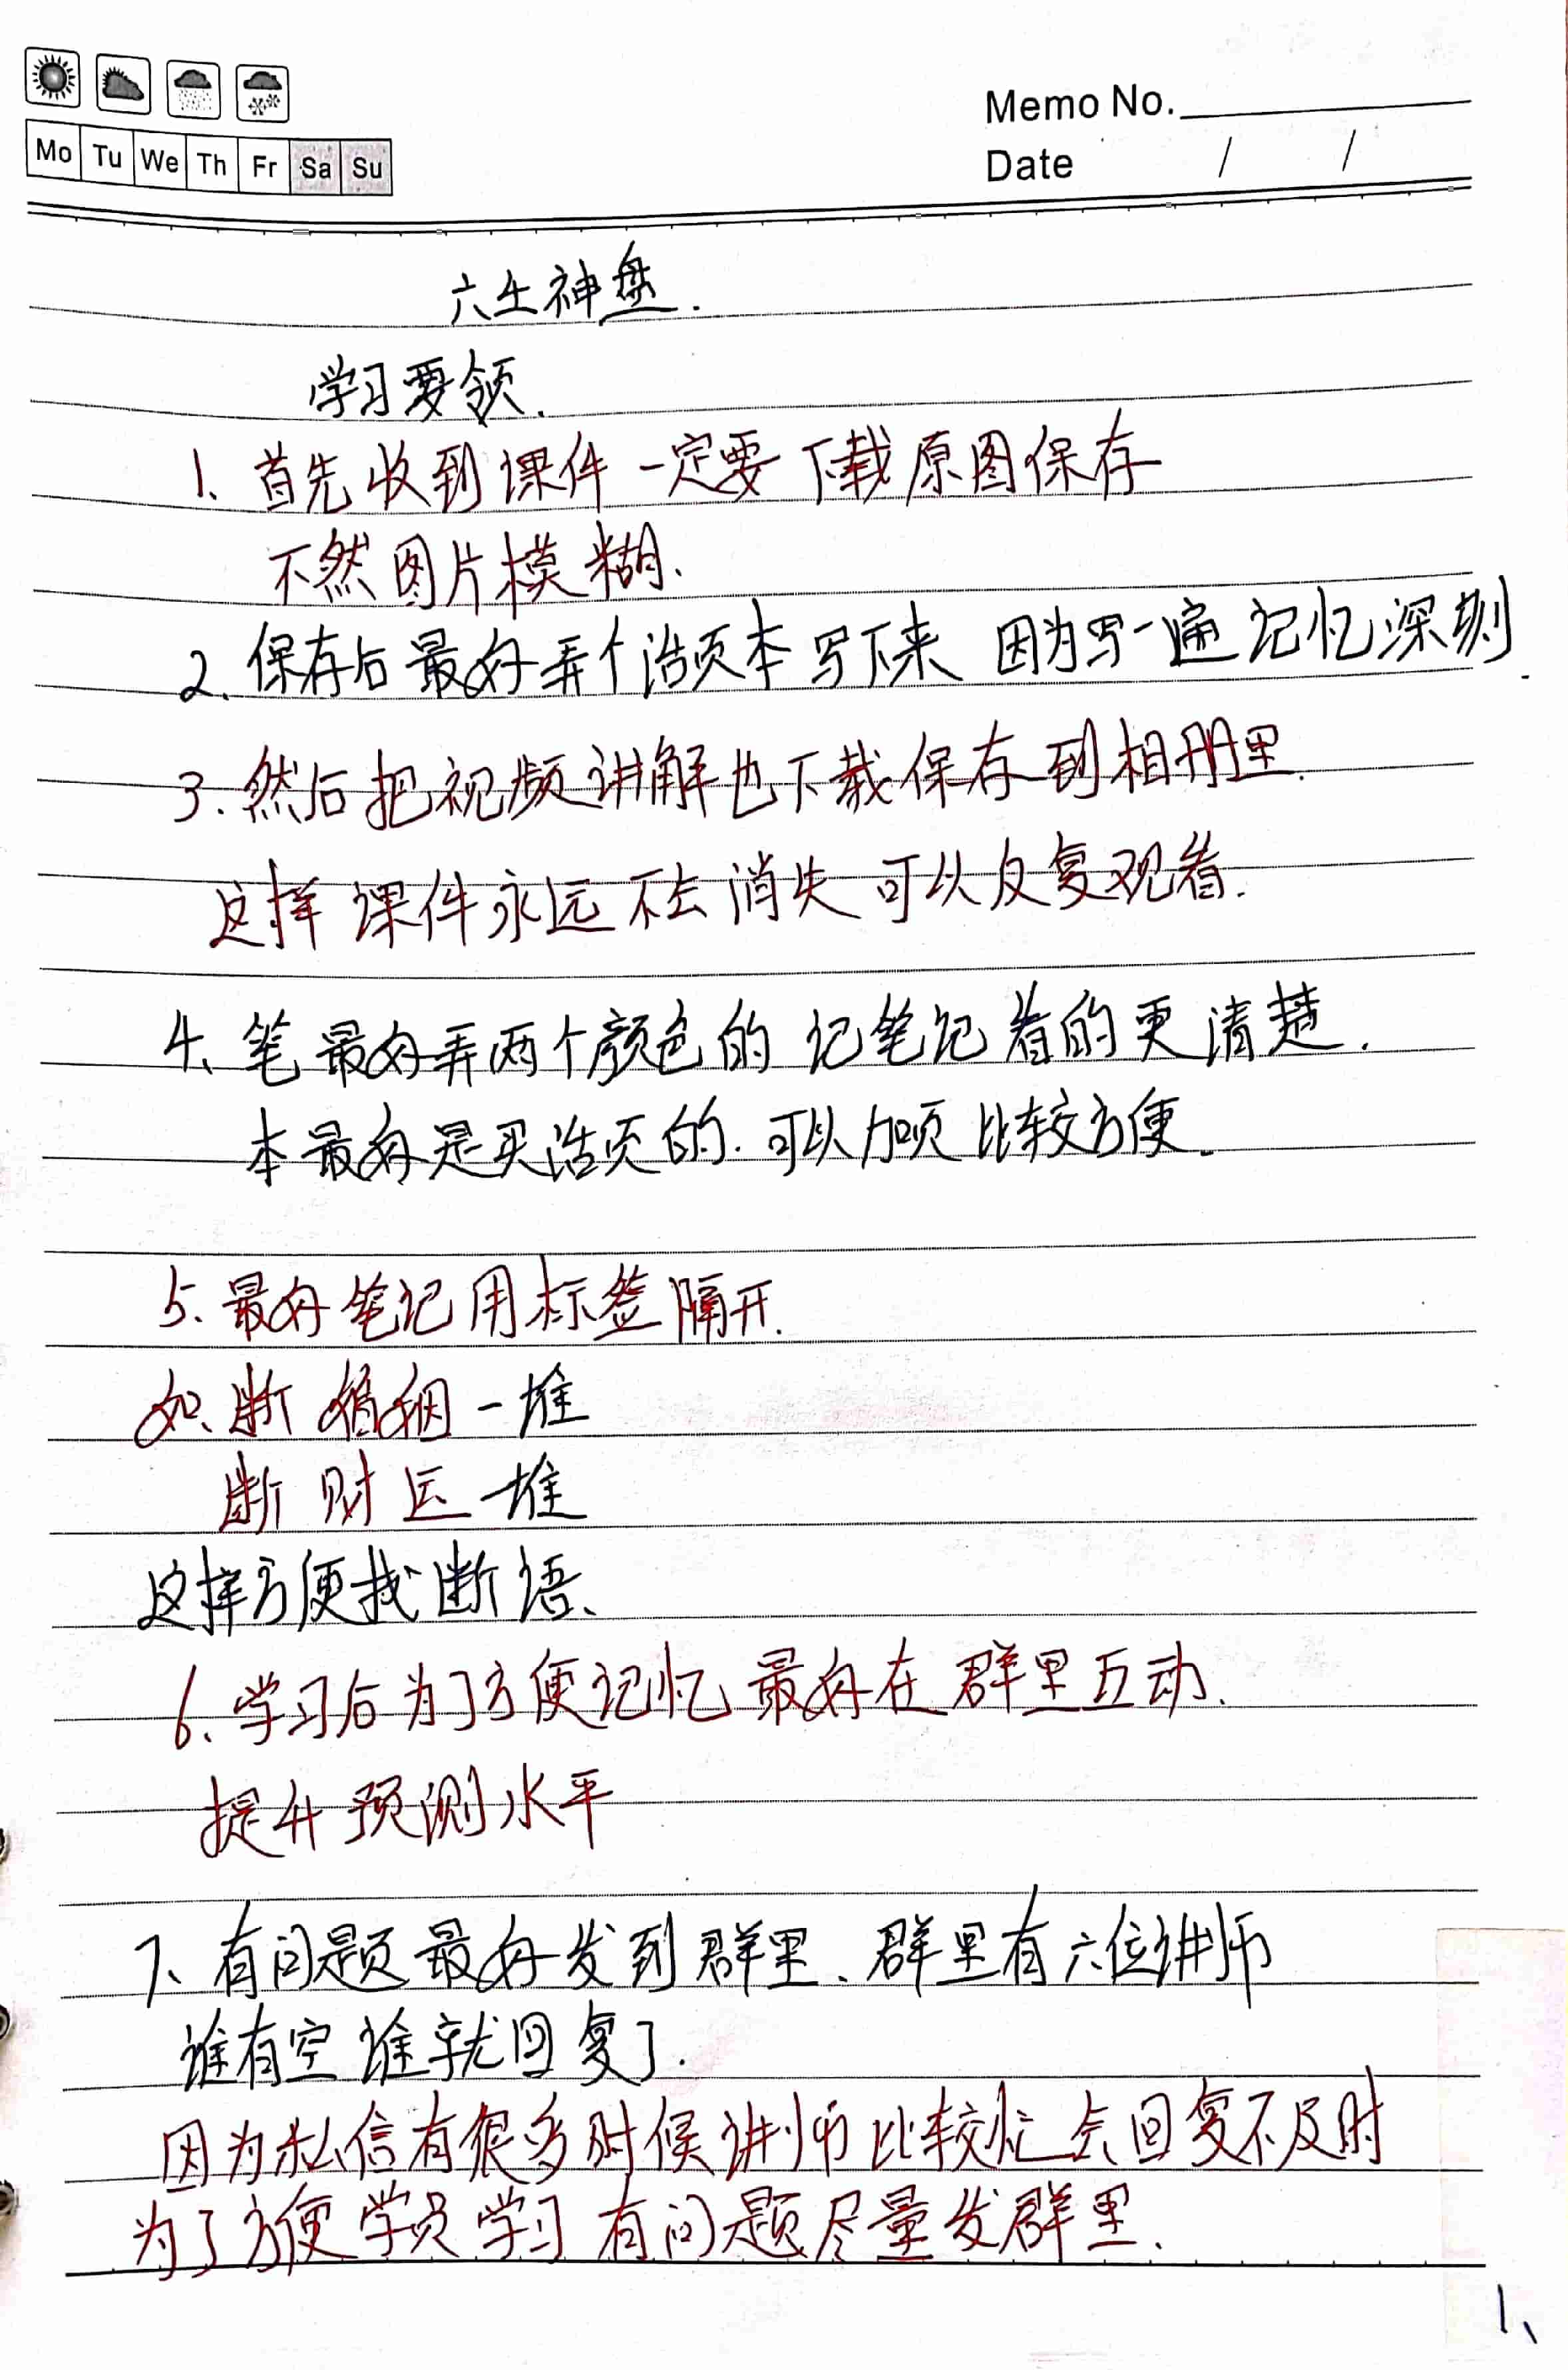 Mo Tu We Th Fr Sa Su
Memo No.
Date / /
六壬神盘.
学习要领.
1、首先收到课件一定要下载原图保存
不然图片模糊.
2、保存后最好弄个活页本写下来 因为写一遍记忆深刻.
3.然后把视频讲解也下载保存到相册里.
这样课件永远不会消失可以反复观看.
4、笔最好弄两个颜色的 记笔记看的更清楚.
本最好是买活页的.可以加页比较方便.
5.最好笔记用标签隔开.
如、断婚姻一堆
断财运一堆
这样方便找断语、
6、学习后为了方便记忆最好在群里互动.
提升预测水平
7、有问题最好发到群里、群里有六位讲师
谁有空谁就回复了.
因为私信有很多时候讲师比较忙会回复不及时
为了方便学员学习有问题尽量发群里.
1、